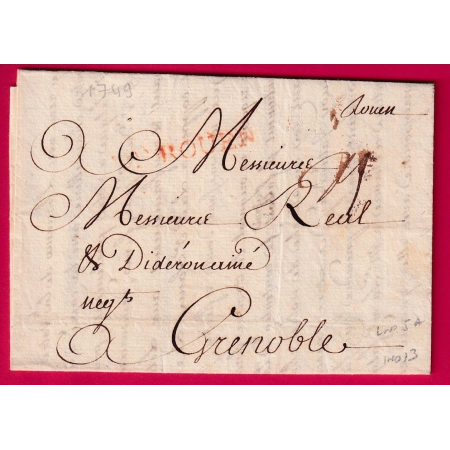 1749
Rouen
ROUEN
Messieurs
Messieurs Real
& Didéron ainé
negts
Grenoble
IND 13